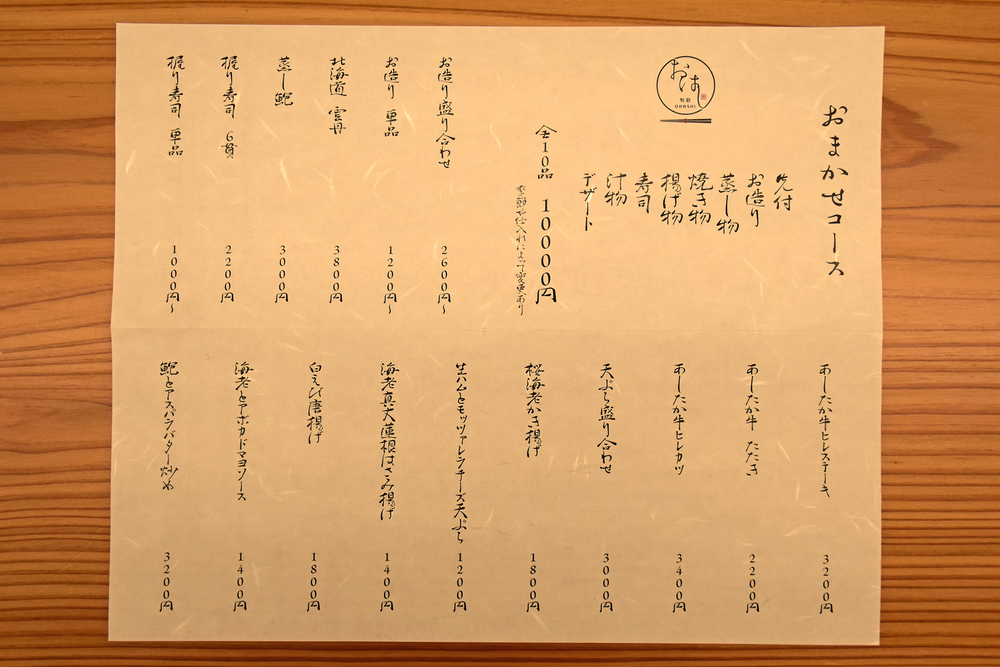 おまかせコース
おはし
旬彩
OHASHI
先付
お造り
蒸し物
焼き物
揚げ物
寿司
汁物
デザート
全10品 10000円
季節や仕入れによって変更あり
お造り盛り合わせ 2600円~
お造り 単品 1200円~
北海道 雲丹 3800円
蒸し鮑 3000円
握り寿司 6貫 2200円
握り寿司 単品 1000円~
あしたか牛ヒレステーキ 3200円
あしたか牛 たたき 2200円
あしたか牛ヒレカツ 3400円
天ぷら盛り合わせ 3000円
桜海老かき揚げ 1800円
生ハムとモッツァレラチーズ天ぷら 1200円
海老真丈蓮根はさみ揚げ 1400円
白えび唐揚げ 1800円
海老とアボカドマヨソース 1400円
鮑とアスパラバター炒め 3200円